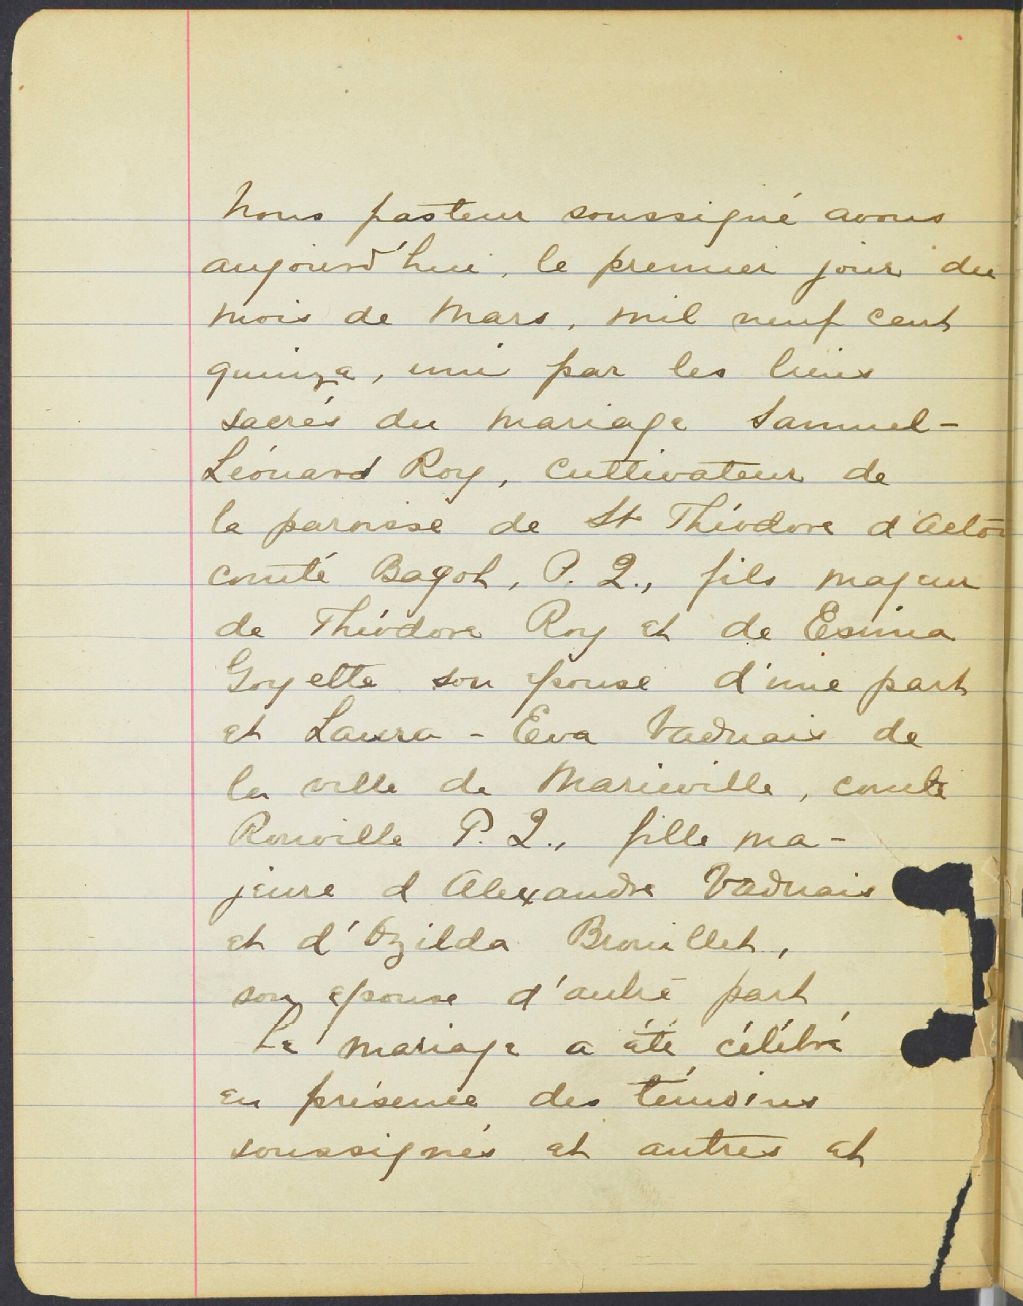 Nous pasteur soussigné avons
aujourd'hui, le premier jour du
mois de Mars, mil neuf cent
quinze, uni par les liens
sacrés du mariage Samuel-
Léonard Roy, cultivateur de
la paroisse de St Théodore d'Acton
comté Bagot, P. Q., fils majeur
de Théodore Roy et de Esima
Goyette son épouse d'une part
et Laura-Eva Vadnais de
la ville de Marieville, comté
Rouville P. Q., fille ma-
jeure d'Alexandre Vadnais
et d'Ozilda Brouillet,
son épouse d'autre part
Le mariage a été célébré
en présence des témoins
soussignés et autres et